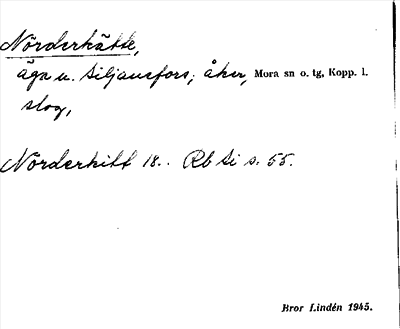 Nörderhätte,
äga u. Siljansfors; åker, Mora sn o. tg, Kopp. l.
slog,
Nörderhitt 18.. Rb Si s. 55.
Bror Lindén 1945.